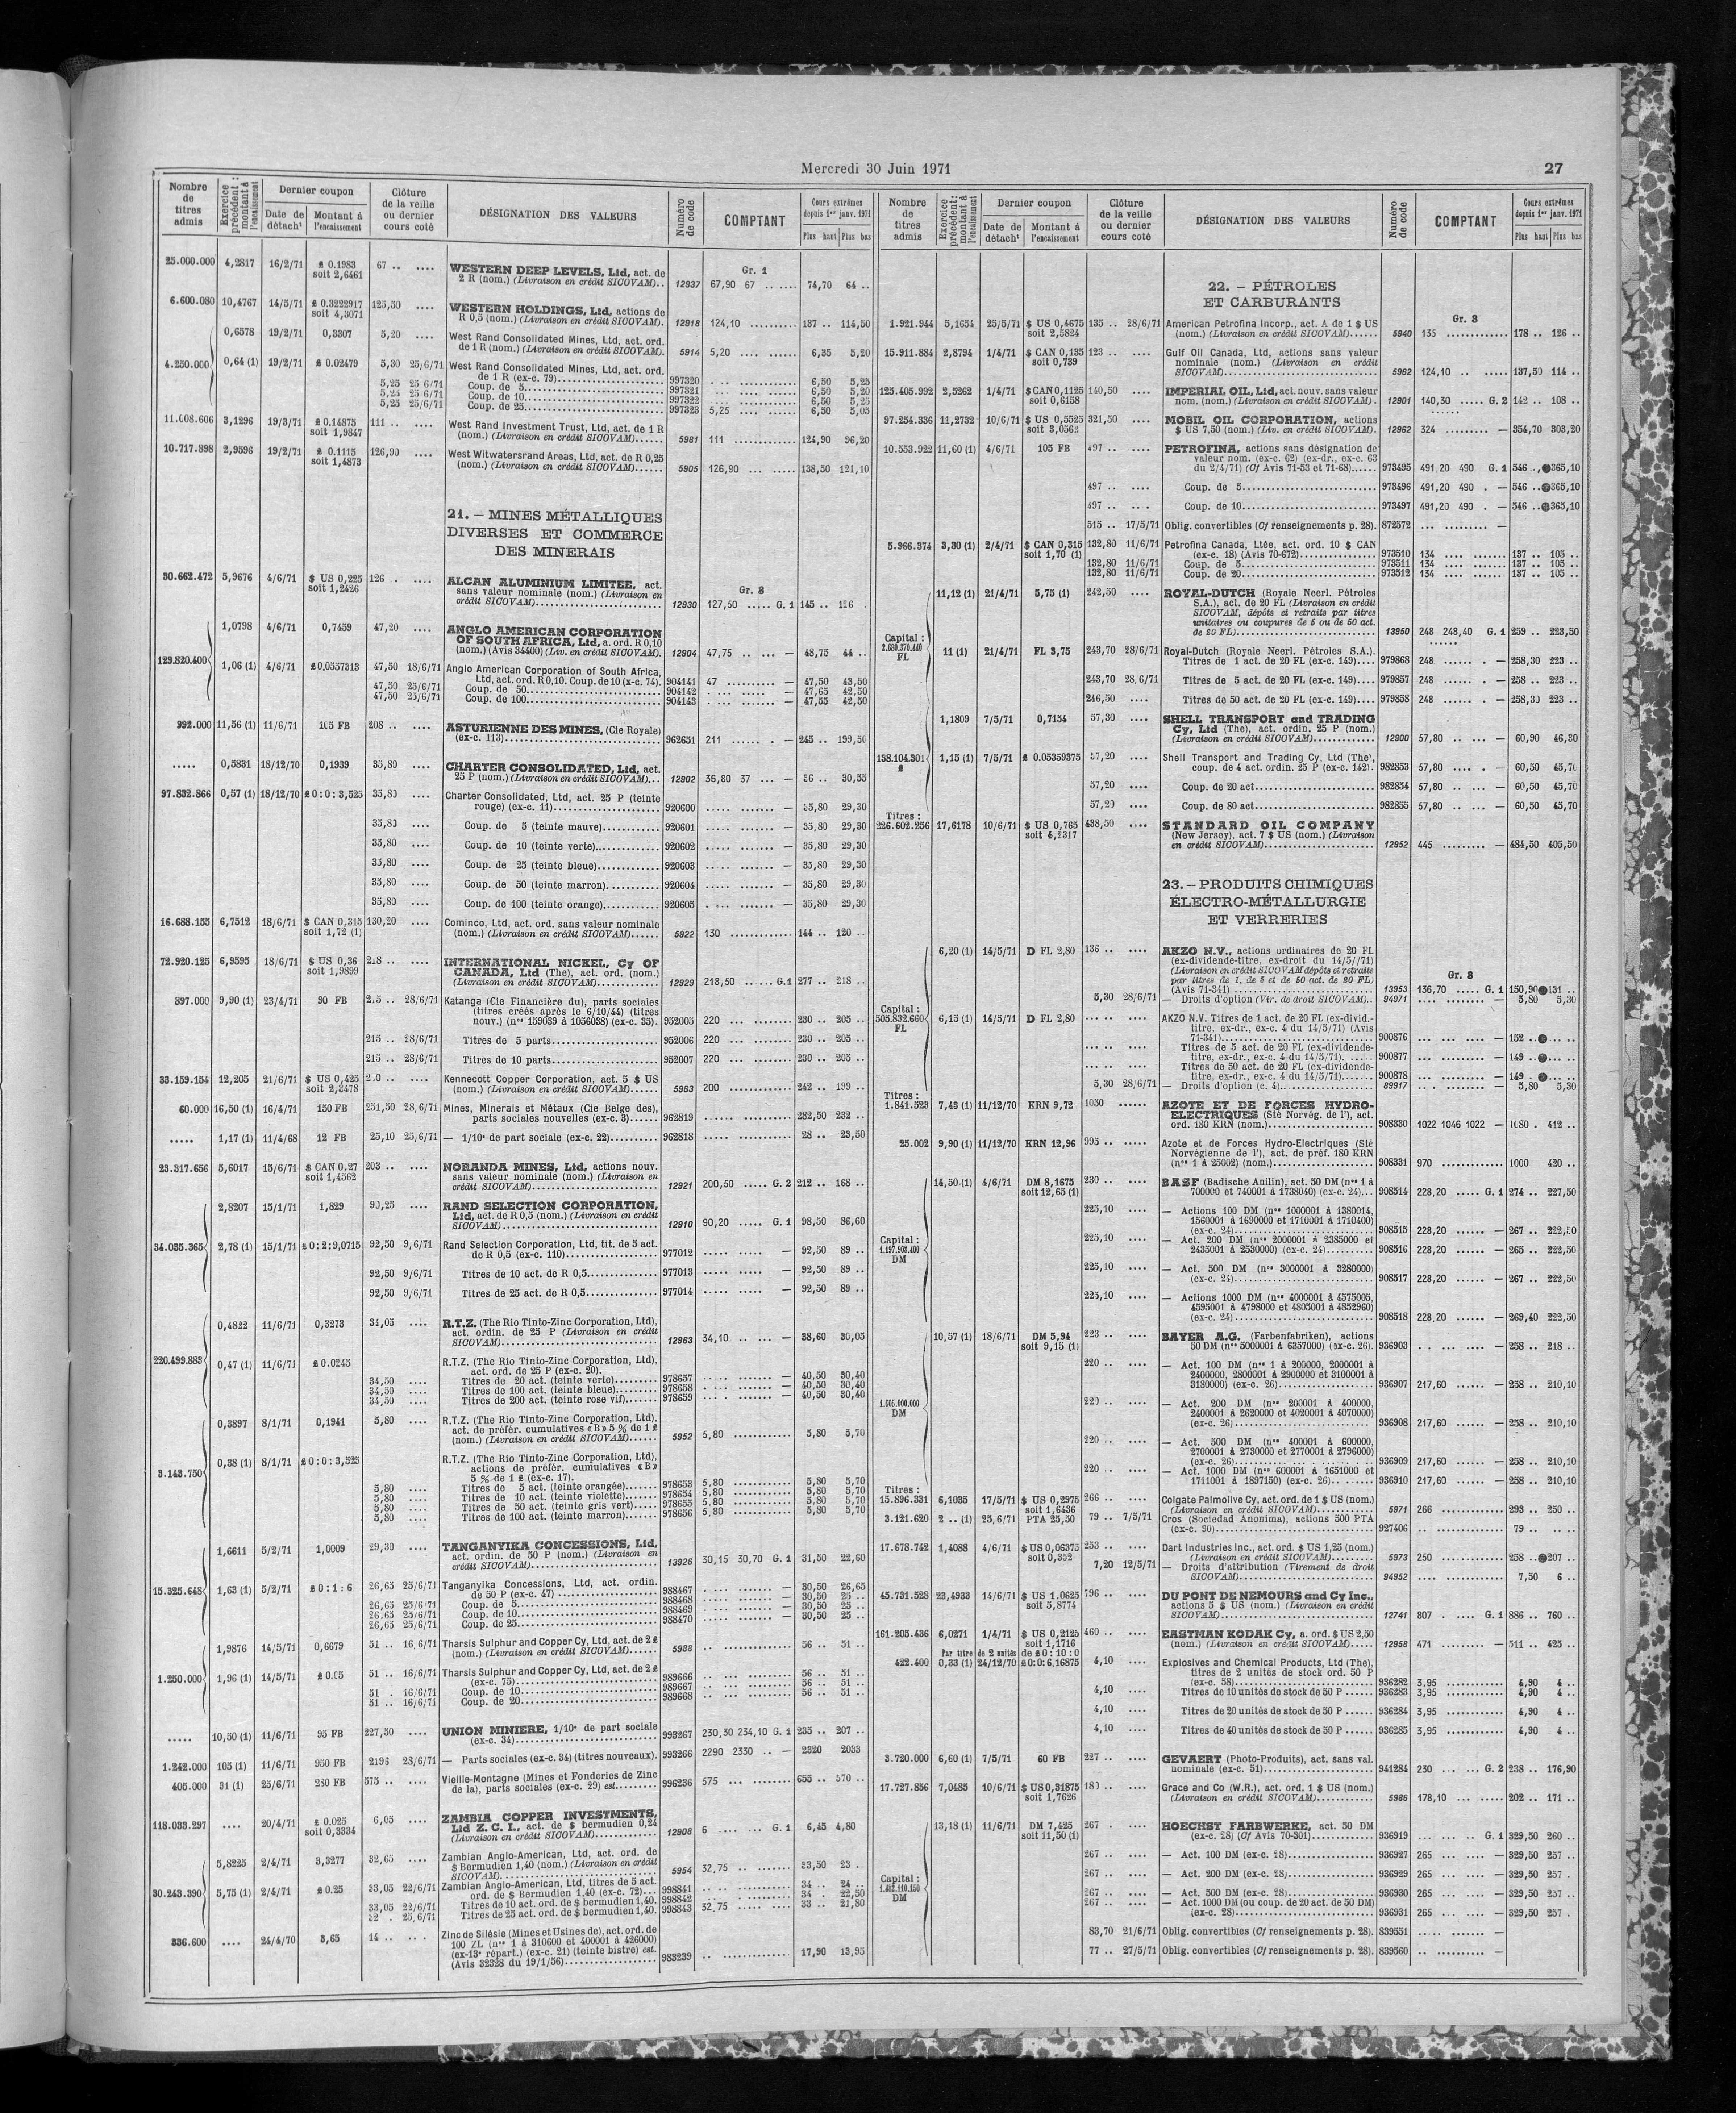 Mercredi 30 Juin 1971
27
Nombre de titres admis
Exercice précédent : montant à l'encaissement
Dernier coupon
Date de détacht
Montant à l'encaissement
Clôture de la veille ou dernier cours coté
DÉSIGNATION DES VALEURS
Numéro de code
COMPTANT
Cours extrêmes depuis 1er janv. 1971
Plus haut
Plus bas
Gr. 1
25.000.000 4,2817 16/2/71 £ 0.1983 67 .. .... WESTERN DEEP LEVELS, Ltd, act. de
soit 2,6461 2 R (nom.) (Livraison en crédit SICOVAM).. 12937 67,90 67 .. .... 74,70 64 ..
6.600.080 10,4767 14/5/71 £ 0.3222917 125,50 .... WESTERN HOLDINGS, Ltd, actions de
soit 4,3071 R 0,5 (nom.) (Livraison en crédit SICOVAM). 12918 124,10 .......... 137 .. 114,50
0,6578 19/2/71 0,3307 5,20 .... West Rand Consolidated Mines, Ltd, act. ord.
de 1 R (nom.) (Livraison en crédit SICOVAM). 5914 5,20 .... ...... 6,35 5,20
4.250.000 0,64 (1) 19/2/71 £ 0.02479 5,30 25/6/71 West Rand Consolidated Mines, Ltd, act. ord.
de 1 R (ex-c. 79) 997320 6,50 5,25
5,25 25/6/71 Coup. de 5 997321 6,50 5,20
5,25 25/6/71 Coup. de 10 997322 6,50 5,25
5,25 25/6/71 Coup. de 25 997323 5,25 6,50 5,05
11.608.606 3,1296 19/3/71 £ 0.14875 111 .. .... West Rand Investment Trust, Ltd, act. de 1 R
soit 1,9847 (nom.) (Livraison en crédit SICOVAM)...... 5981 111 124,90 96,20
10.717.898 2,9596 19/2/71 £ 0.1115 126,90 .... West Witwatersrand Areas, Ltd, act. de R 0,25
soit 1,4873 (nom.) (Livraison en crédit SICOVAM)...... 5905 126,90 138,50 121,10
21. — MINES MÉTALLIQUES
DIVERSES ET COMMERCE
DES MINERAIS
Gr. 8
30.662.472 5,9676 4/6/71 $ US 0,225 126 . .... ALCAN ALUMINIUM LIMITEE, act.
soit 1,2426 sans valeur nominale (nom.) (Livraison en
crédit SICOVAM) 12930 127,50 ..... G. 1 145 .. 126 .
1,0798 4/6/71 0,7459 47,20 .... ANGLO AMERICAN CORPORATION
OF SOUTH AFRICA, Ltd, a. ord. R 0,10
(nom.) (Avis 34400) (Liv. en crédit SICOVAM). 12904 47,75 — 48,75 44 ..
129.820.400 1,06 (1) 4/6/71 £0,0557313 47,50 18/6/71 Anglo American Corporation of South Africa,
Ltd, act. ord. R 0,10. Coup. de 10 (x-c. 74). 904141 47 — 47,50 43,50
47,50 25/6/71 Coup. de 50 904142 — 47,65 42,50
47,50 25/6/71 Coup. de 100 904143 — 47,55 42,50
992.000 11,56 (1) 11/6/71 105 FB 208 .. .... ASTURIENNE DES MINES, (Cie Royale)
(ex-c. 113) 962651 211 — 245 .. 199,50
..... 0,5831 18/12/70 0,1939 35,80 .... CHARTER CONSOLIDATED, Ltd, act.
25 P (nom.) (Livraison en crédit SICOVAM)... 12902 36,80 37 ... — 36 .. 30,55
97.832.866 0,57 (1) 18/12/70 £0:0:3,525 35,80 .... Charter Consolidated, Ltd, act. 25 P (teinte
rouge) (ex-c. 11) 920600 — 35,80 29,30
35,80 .... Coup. de 5 (teinte mauve) 920601 — 35,80 29,30
35,80 .... Coup. de 10 (teinte verte) 920602 — 35,80 29,30
35,80 .... Coup. de 25 (teinte bleue) 920603 — 35,80 29,30
35,80 .... Coup. de 50 (teinte marron) 920604 — 35,80 29,30
35,80 .... Coup. de 100 (teinte orange) 920605 — 35,80 29,30
16.688.155 6,7512 18/6/71 $ CAN 0,315 130,20 .... Cominco, Ltd, act. ord. sans valeur nominale
soit 1,72 (1) (nom.) (Livraison en crédit SICOVAM)...... 5922 130 144 .. 120 ..
72.920.125 6,9595 18/6/71 $ US 0,36 218 .. .... INTERNATIONAL NICKEL, Cy OF
soit 1,9899 CANADA, Ltd (The), act. ord. (nom.)
(Livraison en crédit SICOVAM) 12929 218,50 ..... G. 1 277 .. 218 ..
897.000 9,90 (1) 23/4/71 90 FB 215 .. 28/6/71 Katanga (Cie Financière du), parts sociales
(titres créés après le 6/10/44) (titres
nouv.) (nos 159039 à 1056038) (ex-c. 35). 952005 220 — 230 .. 205 ..
215 .. 28/6/71 Titres de 5 parts 952006 220 — 230 .. 205 ..
215 .. 28/6/71 Titres de 10 parts 952007 220 — 230 .. 205 ..
33.159.154 12,205 21/6/71 $ US 0,425 Kennecott Copper Corporation, act. 5 $ US
soit 2,3478 (nom.) (Livraison en crédit SICOVAM)...... 5963 200 242 .. 199 ..
60.000 16,50 (1) 16/4/71 150 FB 251,50 28/6/71 Mines, Minerais et Métaux (Cie Belge des),
parts sociales nouvelles (ex-c. 3) 962819 282,50 232 ..
..... 1,17 (1) 11/4/68 12 FB 25,10 25/6/71 — 1/10e de part sociale (ex-c. 22) 962818 28 .. 23,50
23.317.656 5,6017 15/6/71 $ CAN 0,27 203 .. .... NORANDA MINES, Ltd, actions nouv.
soit 1,4562 sans valeur nominale (nom.) (Livraison en
crédit SICOVAM) 12921 200,50 .... G. 2 212 .. 168 ..
2,8207 15/1/71 1,829 90,25 .... RAND SELECTION CORPORATION,
Ltd, act. de R 0,5 (nom.) (Livraison en crédit
SICOVAM) 12910 90,20 ..... G. 1 98,50 86,60
34.035.365 2,78 (1) 15/1/71 £0:2:9,0715 92,50 9/6/71 Rand Selection Corporation, Ltd, tit. de 5 act.
de R 0,5 (ex-c. 110) 977012 — 92,50 89 ..
92,50 9/6/71 Titres de 10 act. de R 0,5 977013 — 92,50 89 ..
92,50 9/6/71 Titres de 25 act. de R 0,5 977014 — 92,50 89 ..
0,4822 11/6/71 0,3273 34,05 .... R.T.Z. (The Rio Tinto-Zinc Corporation, Ltd),
act. ordin. de 25 P (Livraison en crédit
SICOVAM) 12963 34,10 — 38,60 30,05
220.499.883 0,47 (1) 11/6/71 £ 0.0245 R.T.Z. (The Rio Tinto-Zinc Corporation, Ltd),
act. ord. de 25 P (ex-c. 20).
34,50 .... Titres de 20 act. (teinte verte) 978657 — 40,50 30,40
34,50 .... Titres de 100 act. (teinte bleue) 978658 — 40,50 30,40
34,50 .... Titres de 200 act. (teinte rose vif) 978659 — 40,50 30,40
0,3897 8/1/71 0,1941 5,80 .... R.T.Z. (The Rio Tinto-Zinc Corporation, Ltd),
act. de préfér. cumulatives «B» 5 % de 1 £
(nom.) (Livraison en crédit SICOVAM)...... 5952 5,80 5,80 5,70
3.143.750 0,38 (1) 8/1/71 £0:0:3,525 R.T.Z. (The Rio Tinto-Zinc Corporation, Ltd),
actions de préfér. cumulatives «B»
5 % de 1 £ (ex-c. 17).
5,80 .... Titres de 5 act. (teinte orangée) 978653 5,80 5,80 5,70
5,80 .... Titres de 10 act. (teinte violette) 978654 5,80 5,80 5,70
5,80 .... Titres de 50 act. (teinte gris vert) 978655 5,80 5,80 5,70
5,80 .... Titres de 100 act. (teinte marron) 978656 5,80 5,80 5,70
1,6611 5/2/71 1,0009 29,30 .... TANGANYIKA CONCESSIONS, Ltd,
act. ordin. de 50 P (nom.) (Livraison en
crédit SICOVAM) 13926 30,15 30,70 G. 1 31,50 22,60
15.325.648 1,63 (1) 5/2/71 £0:1:6 26,65 25/6/71 Tanganyika Concessions, Ltd, act. ordin.
de 50 P (ex-c. 47) 988467 — 30,50 26,65
26,65 25/6/71 Coup. de 5 988468 — 30,50 25 ..
26,65 25/6/71 Coup. de 10 988469 — 30,50 25 ..
26,65 25/6/71 Coup. de 25 988470 — 30,50 25 ..
1,9876 14/5/71 0,6679 51 .. 16/6/71 Tharsis Sulphur and Copper Cy, Ltd, act. de 2 £
(nom.) (Livraison en crédit SICOVAM) 5988 56 .. 51 ..
1.250.000 1,96 (1) 14/5/71 £ 0.05 51 .. 16/6/71 Tharsis Sulphur and Copper Cy, Ltd, act. de 2 £
(ex-c. 75) 989666 56 .. 51 ..
51 . 16/6/71 Coup. de 10 989667 56 .. 51 ..
51 .. 16/6/71 Coup. de 20 989668 56 .. 51 ..
..... 10,50 (1) 11/6/71 95 FB 227,50 .... UNION MINIERE, 1/10e de part sociale
(ex-c. 34) 993267 230,30 234,10 G. 1 235 .. 207 ..
1.242.000 105 (1) 11/6/71 950 FB 2195 28/6/71 — Parts sociales (ex-c. 34) (titres nouveaux). 993266 2290 2330 .. — 2320 2033
405.000 31 (1) 25/6/71 280 FB 575 .. .... Vieille-Montagne (Mines et Fonderies de Zinc
de la), parts sociales (ex-c. 29) est. 996236 575 655 .. 570 ..
118.033.297 .... 20/4/71 £ 0.025 6,05 .... ZAMBIA COPPER INVESTMENTS,
soit 0,3334 Ltd Z. C. I., act. de $ bermudien 0,24
(Livraison en crédit SICOVAM) 12908 6 G. 1 6,45 4,80
5,8225 2/4/71 3,3277 32,65 .... Zambian Anglo-American, Ltd, act. ord. de
$ Bermudien 1,40 (nom.) (Livraison en crédit
SICOVAM) 5954 32,75 33,50 23 ..
30.243.390 5,75 (1) 2/4/71 £ 0.25 33,05 22/6/71 Zambian Anglo-American, Ltd, titres de 5 act.
ord. de $ Bermudien 1,40 (ex-c. 72) 998841 34 .. 24 ..
33,05 22/6/71 Titres de 10 act. ord. de $ bermudien 1,40. 998842 34 . 22,50
32 . 25/6/71 Titres de 25 act. ord. de $ bermudien 1,40. 998843 32,75 33 .. 21,80
336.600 .... 24/4/70 3,65 14 .. Zinc de Silésie (Mines et Usines de), act. ord. de
100 ZL (nos 1 à 310600 et 400001 à 426000)
(ex-13e répart.) (ex-c. 21) (teinte bistre) est.
(Avis 32328 du 19/1/56) 983239 17,90 13,95
Nombre de titres admis
Exercice précédent : montant à l'encaissement
Dernier coupon
Date de détacht
Montant à l'encaissement
Clôture de la veille ou dernier cours coté
DÉSIGNATION DES VALEURS
Numéro de code
COMPTANT
Cours extrêmes depuis 1er janv. 1971
Plus haut
Plus bas
22. — PÉTROLES
ET CARBURANTS
Gr. 8
1.921.944 5,1654 25/5/71 $ US 0,4675 135 .. 28/6/71 American Petrofina Incorp., act. A de 1 $ US
soit 2,5824 (nom.) (Livraison en crédit SICOVAM) 5940 135 178 .. 126 ..
15.911.884 2,8794 1/4/71 $ CAN 0,135 123 .. .... Gulf Oil Canada, Ltd, actions sans valeur
soit 0,739 nominale (nom.) (Livraison en crédit
SICOVAM) 5962 124,10 137,50 114 ..
125.405.992 2,5262 1/4/71 $ CAN 0,1125 140,50 .... IMPERIAL OIL, Ltd, act. nouv. sans valeur
soit 0,6158 nom. (nom.) (Livraison en crédit SICOVAM). 12901 140,30 G. 2 142 .. 108 ..
97.254.336 11,2732 10/6/71 $ US 0,5525 321,50 .... MOBIL OIL CORPORATION, actions
soit 3,0562 $ US 7,50 (nom.) (Liv. en crédit SICOVAM). 12962 324 — 354,70 303,20
10.553.922 11,60 (1) 4/6/71 105 FB 497 .. .... PETROFINA, actions sans désignation de
valeur nom. (ex-c. 62) (ex-dr., ex-c. 63
du 2/4/71) (Cf Avis 71-53 et 71-68) 973495 491,20 490 G. 1 546 .. ●365,10
497 .. .... Coup. de 5 973496 491,20 490 . — 546 .. ●365,10
497 .. .... Coup. de 10 973497 491,20 490 . — 546 .. ●365,10
515 .. 17/5/71 Oblig. convertibles (Cf renseignements p. 28). 872572 —
5.966.374 3,30 (1) 2/4/71 $ CAN 0,315 132,80 11/6/71 Petrofina Canada, Ltée, act. ord. 10 $ CAN
soit 1,70 (1) (ex-c. 18) (Avis 70-672) 973510 134 137 .. 105 ..
132,80 11/6/71 Coup. de 5 973511 134 137 .. 105 ..
132,80 11/6/71 Coup. de 20 973512 134 137 .. 105 ..
11,12 (1) 21/4/71 5,75 (1) 242,50 .... ROYAL-DUTCH (Royale Neerl. Pétroles
S.A.), act. de 20 FL (Livraison en crédit
SICOVAM, dépôts et retraits par titres
unitaires ou coupures de 5 ou de 50 act.
de 20 FL) 13950 248 248,40 G. 1 259 .. 223,50
Capital :
FL
11 (1) 21/4/71 FL 3,75 243,70 28/6/71 Royal-Dutch (Royale Neerl. Pétroles S.A.).
Titres de 1 act. de 20 FL (ex-c. 149) 979868 248 — 258,30 223 ..
243,70 28/6/71 Titres de 5 act. de 20 FL (ex-c. 149) 979857 248 — 258 .. 223 ..
246,50 Titres de 50 act. de 20 FL (ex-c. 149) 979858 248 — 258,30 223 ..
1,1809 7/5/71 0,7154 57,30 .... SHELL TRANSPORT and TRADING
Cy, Ltd (The), act. ordin. 25 P (nom.)
(Livraison en crédit SICOVAM) 12900 57,80 — 60,90 46,30
138.104.301 £ 1,15 (1) 7/5/71 £ 0.05359375 57,20 .... Shell Transport and Trading Cy, Ltd (The),
coup. de 4 act. ordin. 25 P (ex-c. 142). 982853 57,80 — 60,50 45,70
57,20 .... Coup. de 20 act 982854 57,80 — 60,50 45,70
57,20 .... Coup. de 80 act 982855 57,80 — 60,50 45,70
Titres :
226.602.256 17,6178 10/6/71 $ US 0,765 438,50 .... STANDARD OIL COMPANY
soit 4,2317 (New Jersey), act. 7 $ US (nom.) (Livraison
en crédit SICOVAM) 12952 445 — 484,50 405,50
23. — PRODUITS CHIMIQUES
ÉLECTRO-MÉTALLURGIE
ET VERRERIES
Gr. 8
6,20 (1) 14/5/71 D FL 2,80 136 .. .... AKZO N.V., actions ordinaires de 20 FL
(ex-dividende-titre, ex-droit du 14/5/71)
(Livraison en crédit SICOVAM dépôts et retraits
par titres de 1, de 5 et de 50 act. de 20 FL)
(Avis 71-341) 13953 136,70 G. 1 150,90 ●131 ..
5,30 28/6/71 — Droits d'option (Vir. de droit SICOVAM).. 94971 5,80 5,30
Capital :
505.832.660 FL 6,15 (1) 14/5/71 D FL 2,80 AKZO N.V. Titres de 1 act. de 20 FL (ex-divid.-
titre, ex-dr., ex-c. 4 du 14/5/71) (Avis
71-341) 900876 — 152 .. ●
Titres de 5 act. de 20 FL (ex-dividende-
titre, ex-dr., ex-c. 4 du 14/5/71). 900877 — 149 .. ●
Titres de 50 act. de 20 FL (ex-dividende-
titre, ex-dr., ex-c. 4 du 14/5/71) 900878 — 149 . ●
5,30 28/6/71 — Droits d'option (c. 4) 89917 — 5,80 5,30
Titres :
1.841.523 7,43 (1) 11/12/70 KRN 9,72 1050 AZOTE ET DE FORCES HYDRO-
ELECTRIQUES (Sté Norvég. de l'), act.
ord. 180 KRN (nom.) 908330 1022 1046 1022 — 1080 . 412 ..
25.002 9,90 (1) 11/12/70 KRN 12,96 995 .. Azote et de Forces Hydro-Electriques (Sté
Norvégienne de l'), act. de préf. 180 KRN
(nos 1 à 25002) (nom.) 908331 970 1000 420 ..
14,50 (1) 4/6/71 DM 8,1675 230 .. .... BASF (Badische Anilin), act. 50 DM (nos 1 à
soit 12,65 (1) 700000 et 740001 à 1738040) (ex-c. 24) 908514 228,20 G. 1 274 .. 227,50
225,10 — Actions 100 DM (nos 1000001 à 1380014,
1560001 à 1690000 et 1710001 à 1710400)
(ex-c. 24) 908515 228,20 — 267 .. 222,50
Capital :
1.197.908.400 DM
225,10 — Act. 200 DM (nos 2000001 à 2385000 et
2435001 à 2530000) (ex-c. 24) 908516 228,20 — 265 .. 222,50
225,10 — Act. 500 DM (nos 3000001 à 3280000)
(ex-c. 24) 908517 228,20 — 267 .. 222,50
225,10 — Actions 1000 DM (nos 4000001 à 4575005,
4595001 à 4798000 et 4805001 à 4852960)
(ex-c. 24) 908518 228,20 — 269,40 222,50
10,57 (1) 18/6/71 DM 5,94 223 .. .... BAYER A.G. (Farbenfabriken), actions
soit 9,15 (1) 50 DM (nos 5000001 à 6357000) (ex-c. 26). 936903 — 258 .. 218 ..
220 .. .... — Act. 100 DM (nos 1 à 200000, 2000001 à
2400000, 2800001 à 2900000 et 3100001 à
3180000) (ex-c. 26) 936907 217,60 — 258 .. 210,10
DM
220 .. .... — Act. 200 DM (nos 200001 à 400000,
2400001 à 2620000 et 4020001 à 4070000)
(ex-c. 26) 936908 217,60 — 258 .. 210,10
220 .. .... — Act. 500 DM (nos 400001 à 600000,
2700001 à 2730000 et 2770001 à 2796000)
(ex-c. 26) 936909 217,60 — 258 .. 210,10
220 .. .... — Act. 1000 DM (nos 600001 à 1651000 et
1711001 à 1897150) (ex-c. 26) 936910 217,60 — 258 .. 210,10
Titres :
15.896.331 6,1035 17/5/71 $ US 0,2975 266 .. .... Colgate Palmolive Cy, act. ord. de 1 $ US (nom.)
soit 1,6436 (Livraison en crédit SICOVAM) 5971 266 293 .. 250 ..
3.121.620 2 .. (1) 25/6/71 PTA 25,50 79 .. 7/5/71 Cros (Sociedad Anonima), actions 500 PTA
(ex-c. 90) 927406 79 ..
17.678.742 1,4088 4/6/71 $ US 0,06375 253 .. Dart Industries Inc., act. ord. $ US 1,25 (nom.)
soit 0,352 (Livraison en crédit SICOVAM) 5973 250 258 .. ●207 ..
7,20 12/5/71 — Droits d'attribution (Virement de droit
SICOVAM) 94952 7,50 6 ..
45.731.528 23,4933 14/6/71 $ US 1.0625 796 .. DU PONT DE NEMOURS and Cy Inc.,
soit 5,8774 actions 5 $ US (nom.) (Livraison en crédit
SICOVAM) 12741 807 G. 1 886 .. 760 ..
161.205.436 6,0271 1/4/71 $ US 0,2125 460 .. EASTMAN KODAK Cy, a. ord. $ US 2,50
soit 1,1716 (nom.) (Livraison en crédit SICOVAM) 12958 471 — 511 .. 425 ..
Par titre de 2 unités de £0:10:0
422.400 0,33 (1) 24/12/70 £0:0:6,16875 4,10 Explosives and Chemical Products, Ltd (The),
titres de 2 unités de stock ord. 50 P
(ex-c. 58) 936282 3,95 4,90 4 ..
4,10 Titres de 10 unités de stock de 50 P 936283 3,95 4,90 4 ..
4,10 Titres de 20 unités de stock de 50 P 936284 3,95 4,90 4 ..
4,10 Titres de 40 unités de stock de 50 P 936285 3,95 4,90 4 ..
3.720.000 6,60 (1) 7/5/71 60 FB 227 .. GEVAERT (Photo-Produits), act. sans val.
nominale (ex-c. 51) 941284 230 G. 2 238 .. 176,90
17.727.856 7,0485 10/6/71 $ US 0,31875 Grace and Co (W.R.), act. ord. 1 $ US (nom.)
soit 1,7626 (Livraison en crédit SICOVAM) 5986 178,10 202 .. 171 ..
13,18 (1) 11/6/71 DM 7,425 267 . HOECHST FARBWERKE, act. 50 DM
soit 11,50 (1) (ex-c. 28) (Cf Avis 70-301) 936919 G. 1 329,50 260 ..
267 .. — Act. 100 DM (ex-c. 28) 936927 265 — 329,50 257 ..
Capital :
DM
267 .. — Act. 200 DM (ex-c. 28) 936929 265 — 329,50 257 .
267 .. — Act. 500 DM (ex-c. 28) 936930 265 — 329,50 257 ..
267 .. — Act. 1000 DM (ou coup. de 20 act. de 50 DM)
(ex-c. 28) 936931 265 — 329,50 257 .
83,70 21/6/71 Oblig. convertibles (Cf renseignements p. 28). 839551 —
77 .. 27/5/71 Oblig. convertibles (Cf renseignements p. 28). 839560 —